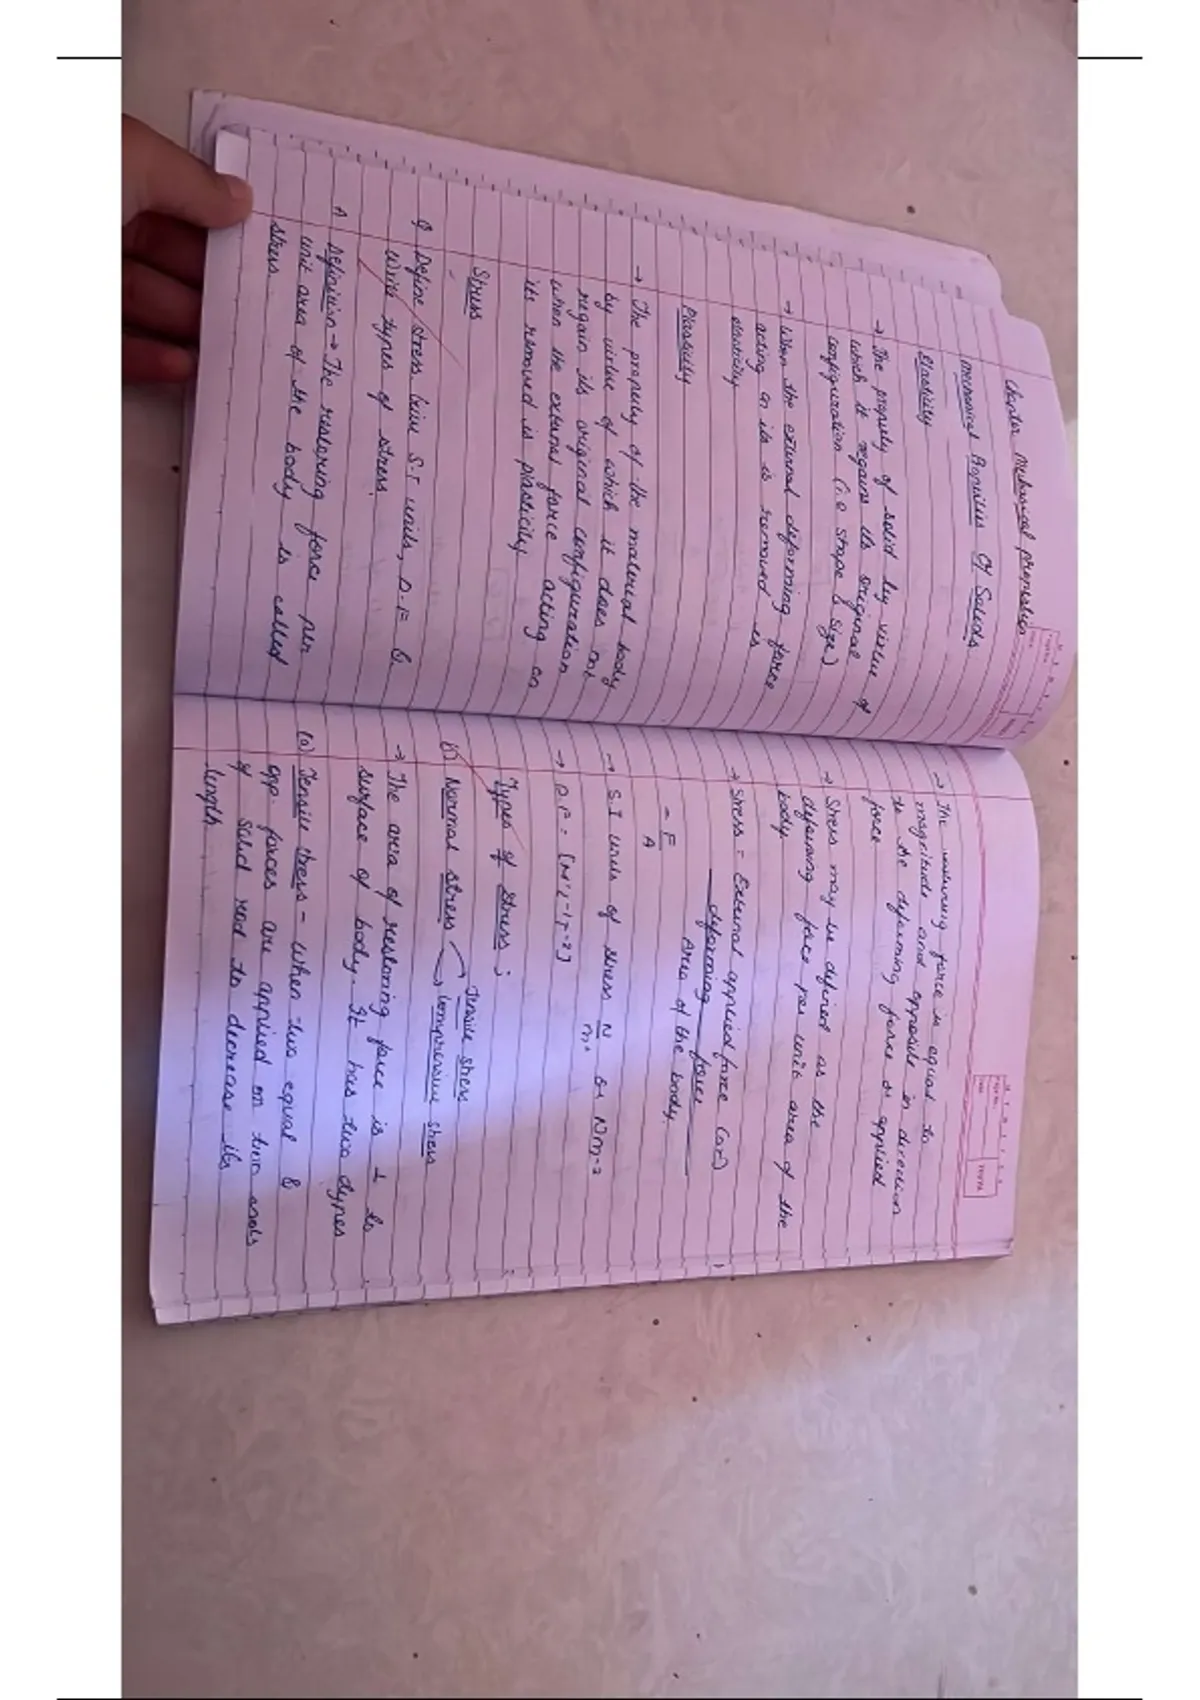 Chapter Mechanical properties
Mechanical Properties Of Solids
Elasticity
→ The property of solid by virtue of
which it regains its original
configuration (i.e shape & size)
→ When the external deforming force
acting on its is removed is
elasticity
Plassicity
→ The property of the material body
by virtue of which it does not
regain its original configuration
when the external force acting on
its removed is plassicity
Stress
Q Define stress. Give S.I units, D.F &
Write types of stress.
A Definition → The restoring force per
unit area of the body is called
stress.
→ The restoring force is equal to
magnitude and opposite in direction
to the deforming force or applied
force
→ Stress may be defined as the
deforming force per unit area of the
body.
→ Stress = External applied force (or)
deforming force
Area of the body
= F
A
→ S.I units of stress N or Nm-2
m2
→ D.F = [M1L-1T-2]
Types of Stress ;
(i) Normal stress → Tensile stress
→ Compressive stress
→ The area of restoring force is ⊥ to
surface of body. It has two types
(a) Tensile stress - When two equal &
opp. forces are applied on two ends
of solid rod to decrease its
length